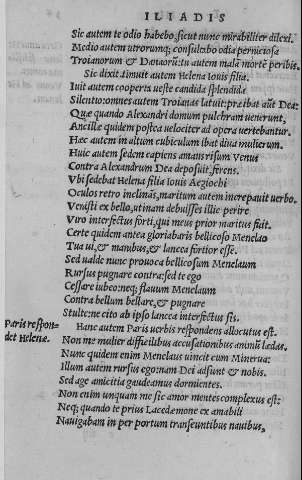 ILIADIS
Sic autem te odio habebo, sicut nunc mirabiliter dilexi.
Medio autem utrorumq; consulã bo odia perniciosa
Troianorum & Danaorũ: tu autem malã morté peribis.
Sic dixit. timuit autem Helena Iouis filia.
Iuit autem cooperta ueste candida splendida
Silentio: omnes autem Troianas latuit: præibat aũt Dea:
Quæ quando Alexandri domum pulchram uenerunt,
Ancillæ quidem postea uelociter ad opera uertebantur.
Hæc autem in altum cubiculum ibat diua mulierum.
Huic autem sedem capiens amans risum Venus
Contra Alexandrum Dea deposuit, ferens.
Vbi sedebat Helena filia Iouis Aegiochi
Oculos retro inclinãs, maritum autem increpauit uerbo.
Venisti ex bello, utinam debuisses illic perire
Viro interfectus forti, qui meus prior maritus fuit.
Certe quidem antea gloriabaris bellicoso Menelao
Tua ui, & manibus, & lancea fortior esse.
Sed uade nunc prouoca bellicosum Menelaum
Rursus pugnare contra: sed te ego
Cessare iubeo: neq; flauum Menelaum
Contra bellum bellare, & pugnare
Stulte: ne cito ab ipso lancea interfectus sis.
Paris respon=
det Helenæ.
Hanc autem Paris uerbis respondens allocutus est.
Non me mulier difficilibus accusationibus animũ lædas.
Nunc quidem enim Menelaus uincit cum Minerua:
Illum autem rursus ego: nam Dei adsunt & nobis.
Sed age amicitia gaudeamus dormientes.
Non enim unquam me sic amor mentes complexus est:
Neq; quando te prius Lacedæmone ex amabili
Nauigabam in per portum transeuntibus nauibus,